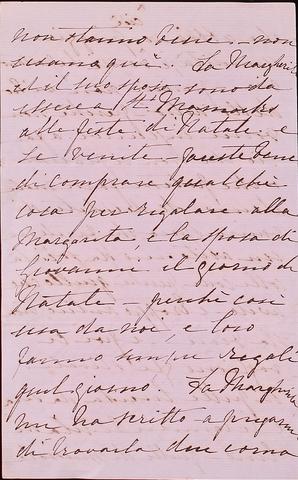 non stanno bene – non
usano qui. La Margherita
ed il suo sposo sono da
essere a
alle feste di Natale e
se venite fareste bene
di comprare qualche
cosa per regalare alla
Margarita, e la sposa di
Giovanni il giorno di
Natale – perchè così
usa da noi, e loro
fanno sempre regali
quel giorno. La Margherita
mi ha scritto a pregarmi
di trovarla due